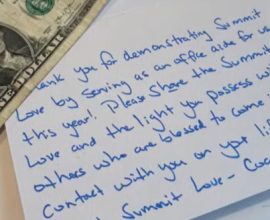 ank you for demonstrating Summit
Love by serving as an office aide for us
this year! Please share the Summit
Love and the light you possess with
others who are blessed to come i
contact with you on your lif
Summit Love-